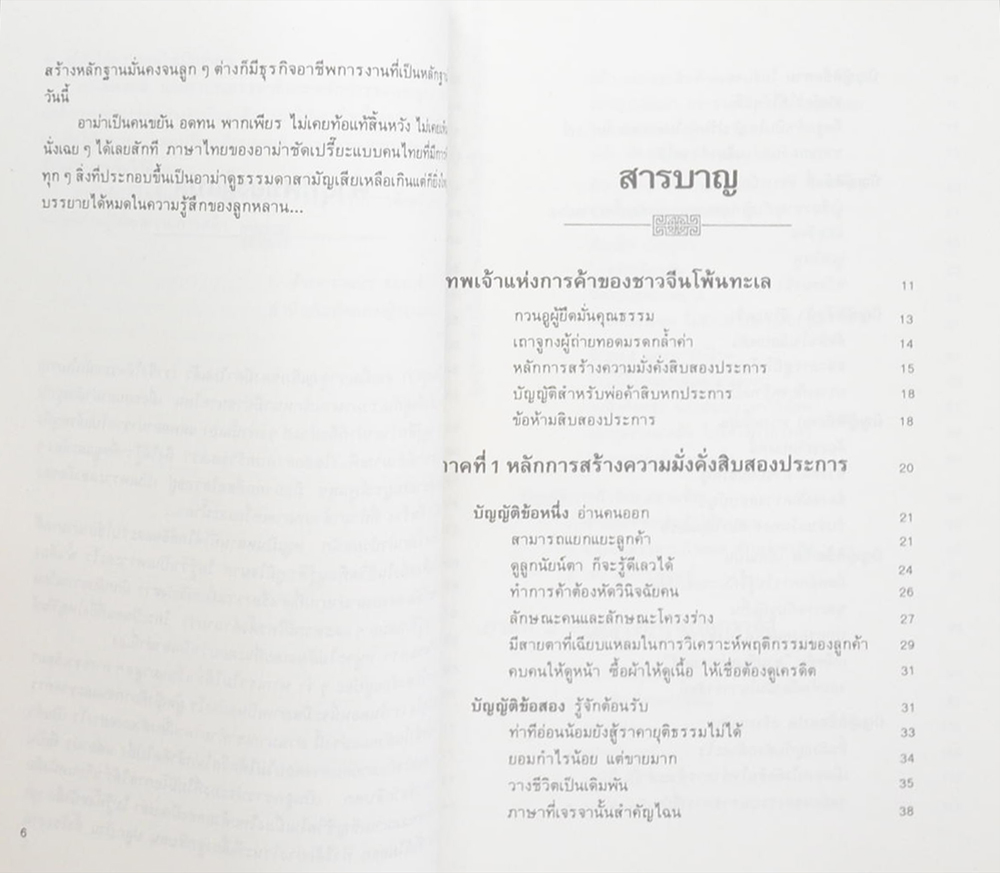 สร้างหลักฐานมั่นคงจนลูก ๆ ต่างก็มีธุรกิจอาชีพการงานที่เป็นหลักฐาน
วันนี้
อาม่าเป็นคนขยัน อดทน พากเพียร ไม่เคยท้อแท้สิ้นหวัง ไม่เคย
นั่งเฉย ๆ ได้เลยสักที ภาษาไทยของอาม่าชัดเปรี๊ยะแบบคนไทยที่มีการ
ทุก ๆ สิ่งที่ประกอบขึ้นเป็นอาม่าดูธรรมดาสามัญเสียเหลือเกินแต่ก็
บรรยายได้หมดในความรู้สึกของลูกหลาน...
6
สารบาญ
ทพเจ้าแห่งการค้าของชาวจีนโพ้นทะเล 11
กวนอูผู้ยึดมั่นคุณธรรม 13
เถาจูกงผู้ถ่ายทอดมรดกล้ำค่า 14
หลักการสร้างความมั่งคั่งสิบสองประการ 15
บัญญัติสำหรับพ่อค้าสิบหกประการ 18
ข้อห้ามสิบสองประการ 18
าคที่ 1 หลักการสร้างความมั่งคั่งสิบสองประการ 20
บัญญัติข้อหนึ่ง อ่านคนออก 21
สามารถแยกแยะลูกค้า 21
ดูลูกนัยน์ตา ก็จะรู้ดีเลวได้ 24
ทำการค้าต้องหัดวินิจฉัยคน 26
ลักษณะคนและลักษณะโครงร่าง 27
มีสายตาที่เฉียบแหลมในการวิเคราะห์พฤติกรรมของลูกค้า 29
คบคนให้ดูหน้า ซื้อผ้าให้ดูเนื้อ ให้เชื่อต้องดูเครดิต 31
บัญญัติข้อสอง รู้จักต้อนรับ 31
ท่าทีอ่อนน้อมยังสู้ราคายุติธรรมไม่ได้ 33
ยอมกำไรน้อย แต่ขายมาก 34
วางชีวิตเป็นเดิมพัน 35
ภาษาที่เจรจานั้นสำคัญไฉน 38